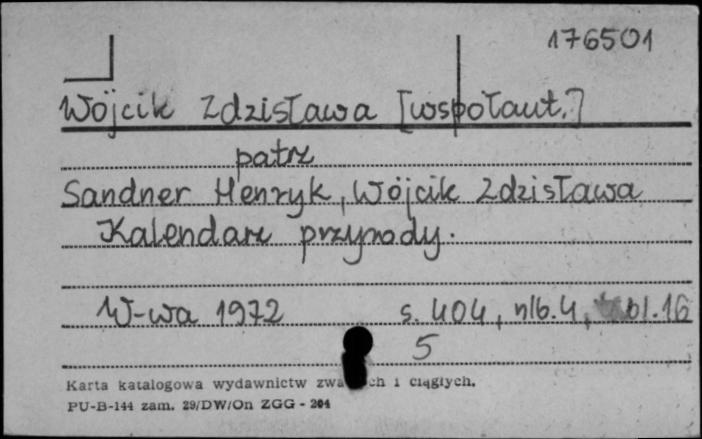 176501
Wójcik Zdzisława [wspołaut.]
patrz
Sandner Henryk, Wójcik Zdzisława
Kalendarz przyrody.
W-wa 1972 s. 404, nlb. 4, bl. 16
5
Karta katalogowa wydawnictw i ciągłych.
PU-B-144 zam. 29/DW/On ZGG - 204